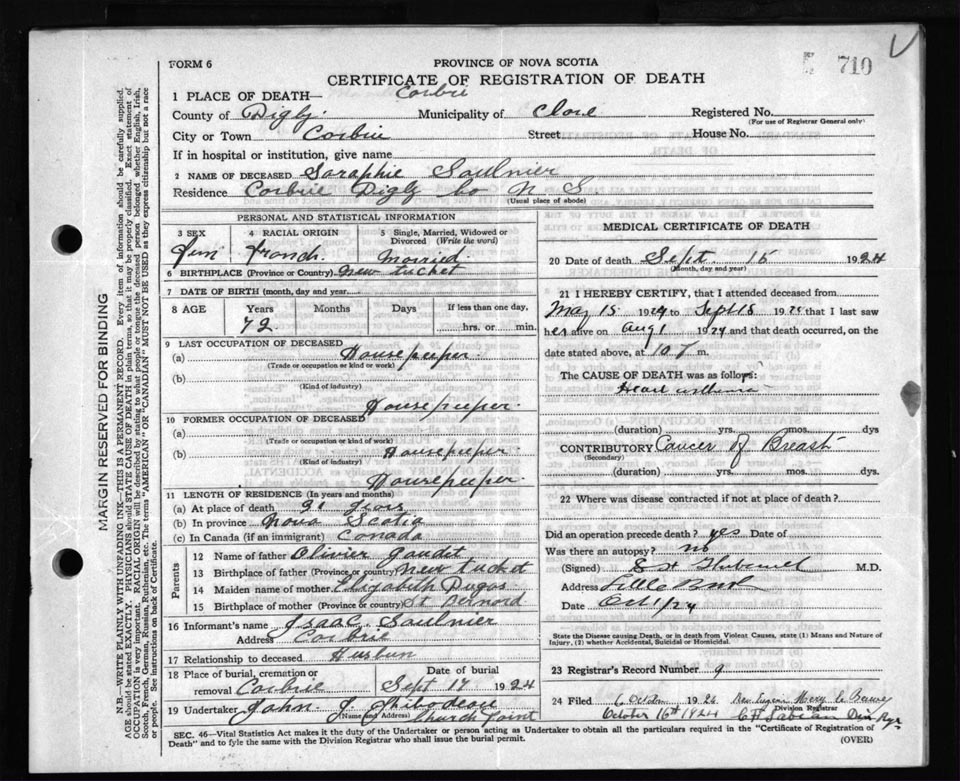 FORM 6
PROVINCE OF NOVA SCOTIA
710
CERTIFICATE OF REGISTRATION OF DEATH
1 PLACE OF DEATH— Corbrie
County of Digby. Municipality of Clare Registered No.
(For use of Registrar General only)
City or Town Corbrie Street House No.
If in hospital or institution, give name
2 NAME OF DECEASED Saraphie Saulnier
Residence Corbrie Digby Co N S
(Usual place of abode)
PERSONAL AND STATISTICAL INFORMATION
3 SEX 4 RACIAL ORIGIN 5 Single, Married, Widowed or Divorced (Write the word)
Fem French. Married.
6 BIRTHPLACE (Province or Country) New Tucket
7 DATE OF BIRTH (month, day and year)
8 AGE Years Months Days If less than one day,
72 hrs. or min.
9 LAST OCCUPATION OF DECEASED
(a) Housepeeper.
(Trade or occupation or kind or work)
(b)
(Kind of industry)
Housepeeper.
10 FORMER OCCUPATION OF DECEASED
(a)
(Trade or occupation or kind of work)
(b) Housepeeper.
(Kind of industry)
Housepeeper.
11 LENGTH OF RESIDENCE (In years and months)
(a) At place of death years
(b) In province Nova Scotia
(c) In Canada (if an immigrant) Canada
Parents
12 Name of father Olivier Gaudet
13 Birthplace of father (Province or country) New Tucket
14 Maiden name of mother Elizabeth Dugas
15 Birthplace of mother (Province or country) St Bernord
16 Informant's name Isaac Saulnier
Address Corbrie
17 Relationship to deceased Husbun
18 Place of burial, cremation or removal Date of burial
Corbrie Sept 17 1924
19 Undertaker John J. Thibodeau
(Name and Address) Church Point
MEDICAL CERTIFICATE OF DEATH
20 Date of death Sept. 15 1924
(Month, day and year)
21 I HEREBY CERTIFY, that I attended deceased from
May 15. 1924 to Sept 15 1924 that I last saw
her alive on Aug 1 1924 and that death occurred, on the
date stated above, at 10 m.
The CAUSE OF DEATH was as follows:
Heart
(duration) yrs. mos. dys
CONTRIBUTORY Cancer of Breast
(Secondary)
(duration) yrs. mos. dys
22 Where was disease contracted if not at place of death?
Did an operation precede death? yes Date of
Was there an autopsy? no
(Signed) M.D.
Address
Date Oct 1/24
State the Disease causing Death, or in death from Violent Causes, state (1) Means and Nature of
Injury, (2) whether Accidental, Suicidal or Homicidal.
23 Registrar's Record Number 9
24 Filed 6 October 192
Division Registrar
October 16th 1924
SEC. 46—Vital Statistics Act makes it the duty of the Undertaker or person acting as Undertaker to obtain all the particulars required in the "Certificate of Registration of
Death" and to fyle the same with the Division Registrar who shall issue the burial permit. (OVER)
MARGIN RESERVED FOR BINDING
N.B.—WRITE PLAINLY WITH UNFADING INK—THIS IS A PERMANENT RECORD. Every item of information should be carefully supplied.
AGE should be stated EXACTLY. PHYSICIANS should STATE CAUSE OF DEATH in plain terms, so that it may be properly classified. Exact statement of
OCCUPATION is very important. RACIAL ORIGIN will be described by stating to what people or tongue the deceased person belonged whether English, Irish,
Scotch, French, German, Russian, Ruthenian, etc. The terms "AMERICAN" OR "CANADIAN" MUST NOT BE USED as they express citizenship but not a race
or people. See instructions on back of Certificate.